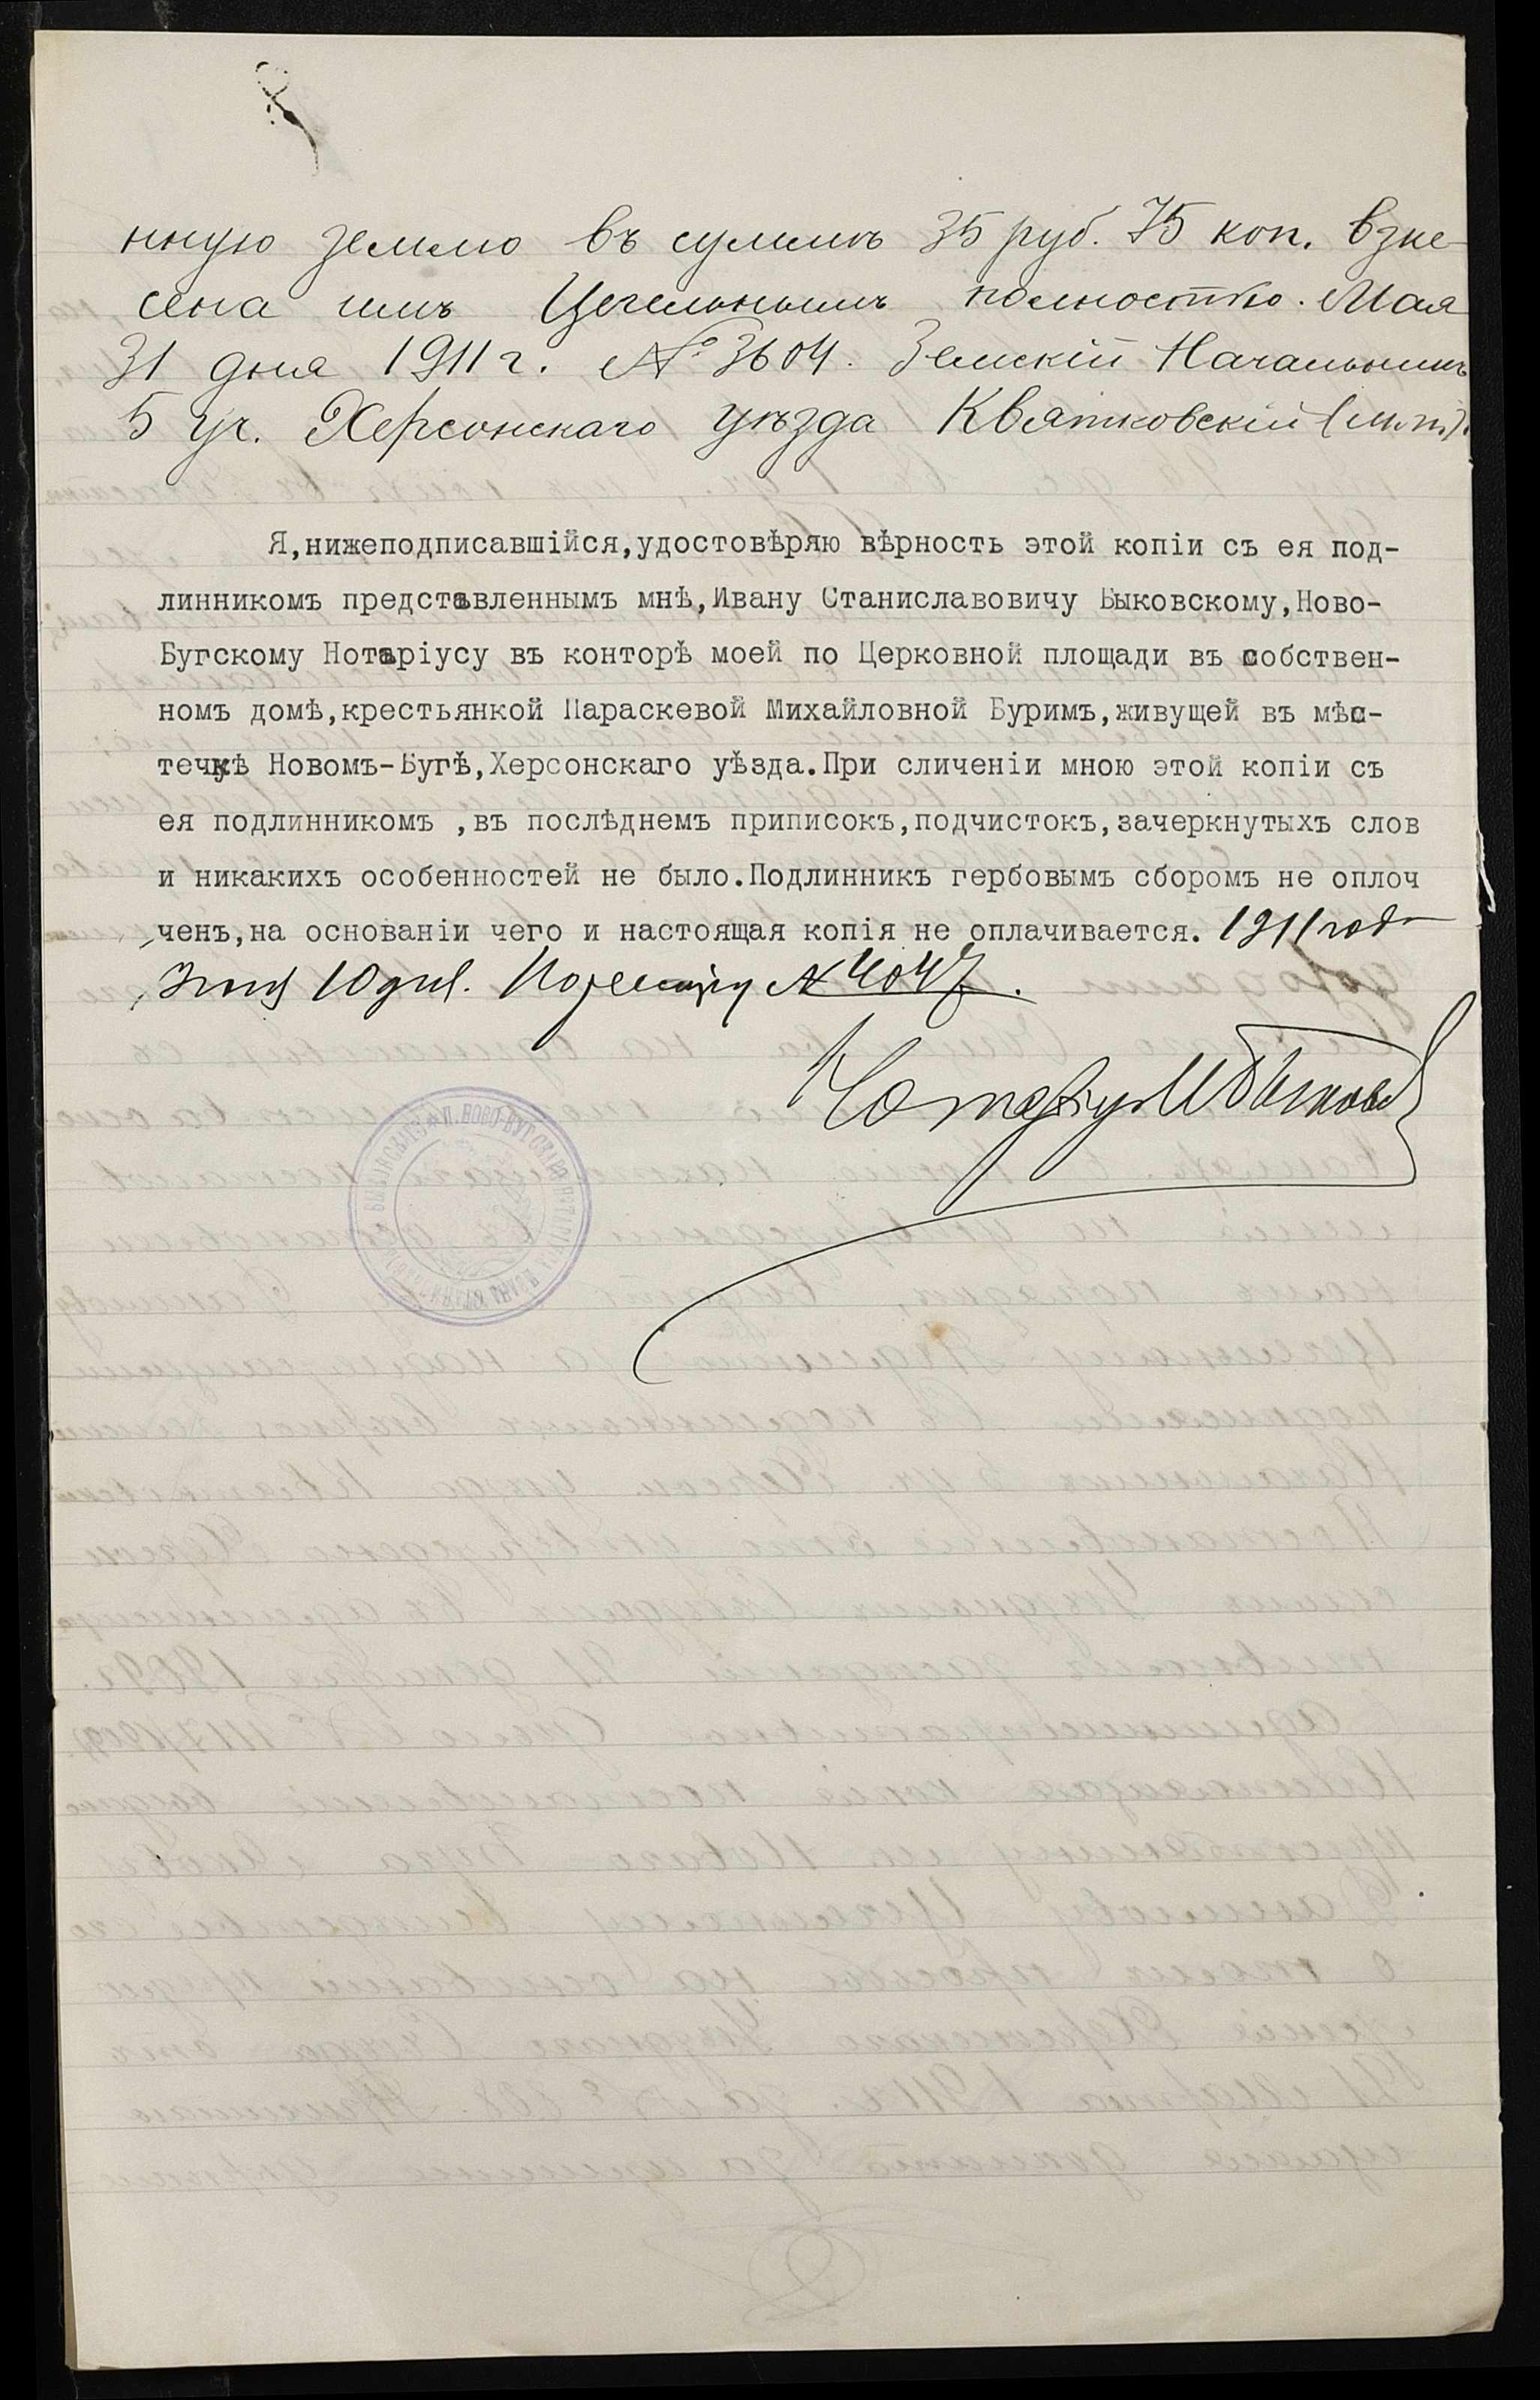 нную землю въ суммѣ 35 руб. 75 коп. взне-
сена имъ Цегельнымъ полностью. Мая
31 дня 1911 г. № 3604. Земскій Начальникъ
5 уч. Херсонскаго уѣзда Квятковскій (м.п.).
Я,нижеподписавшійся,удостовѣряю вѣрность этой копіи съ ея под-
линникомъ представленнымъ мнѣ,Ивану Станиславовичу Быковскому,Ново-
Бугскому Нотаріусу въ конторѣ моей по Церковной площади въ собствен-
номъ домѣ,крестьянкой Параскевой Михайловной Буримъ,живущей въ мѣс-
течкѣ Новомъ-Бугѣ,Херсонскаго уѣзда.При сличеніи мною этой копіи съ
ея подлинникомъ ,въ послѣднемъ приписокъ,подчистокъ,зачеркнутыхъ слов
и никакихъ особенностей не было.Подлинникъ гербовымъ сборомъ не оплоч
ченъ,на основаніи чего и настоящая копія не оплачивается. 1911 года
10 дня. По реестру № 4047.
Нотаріусъ И Быковскій